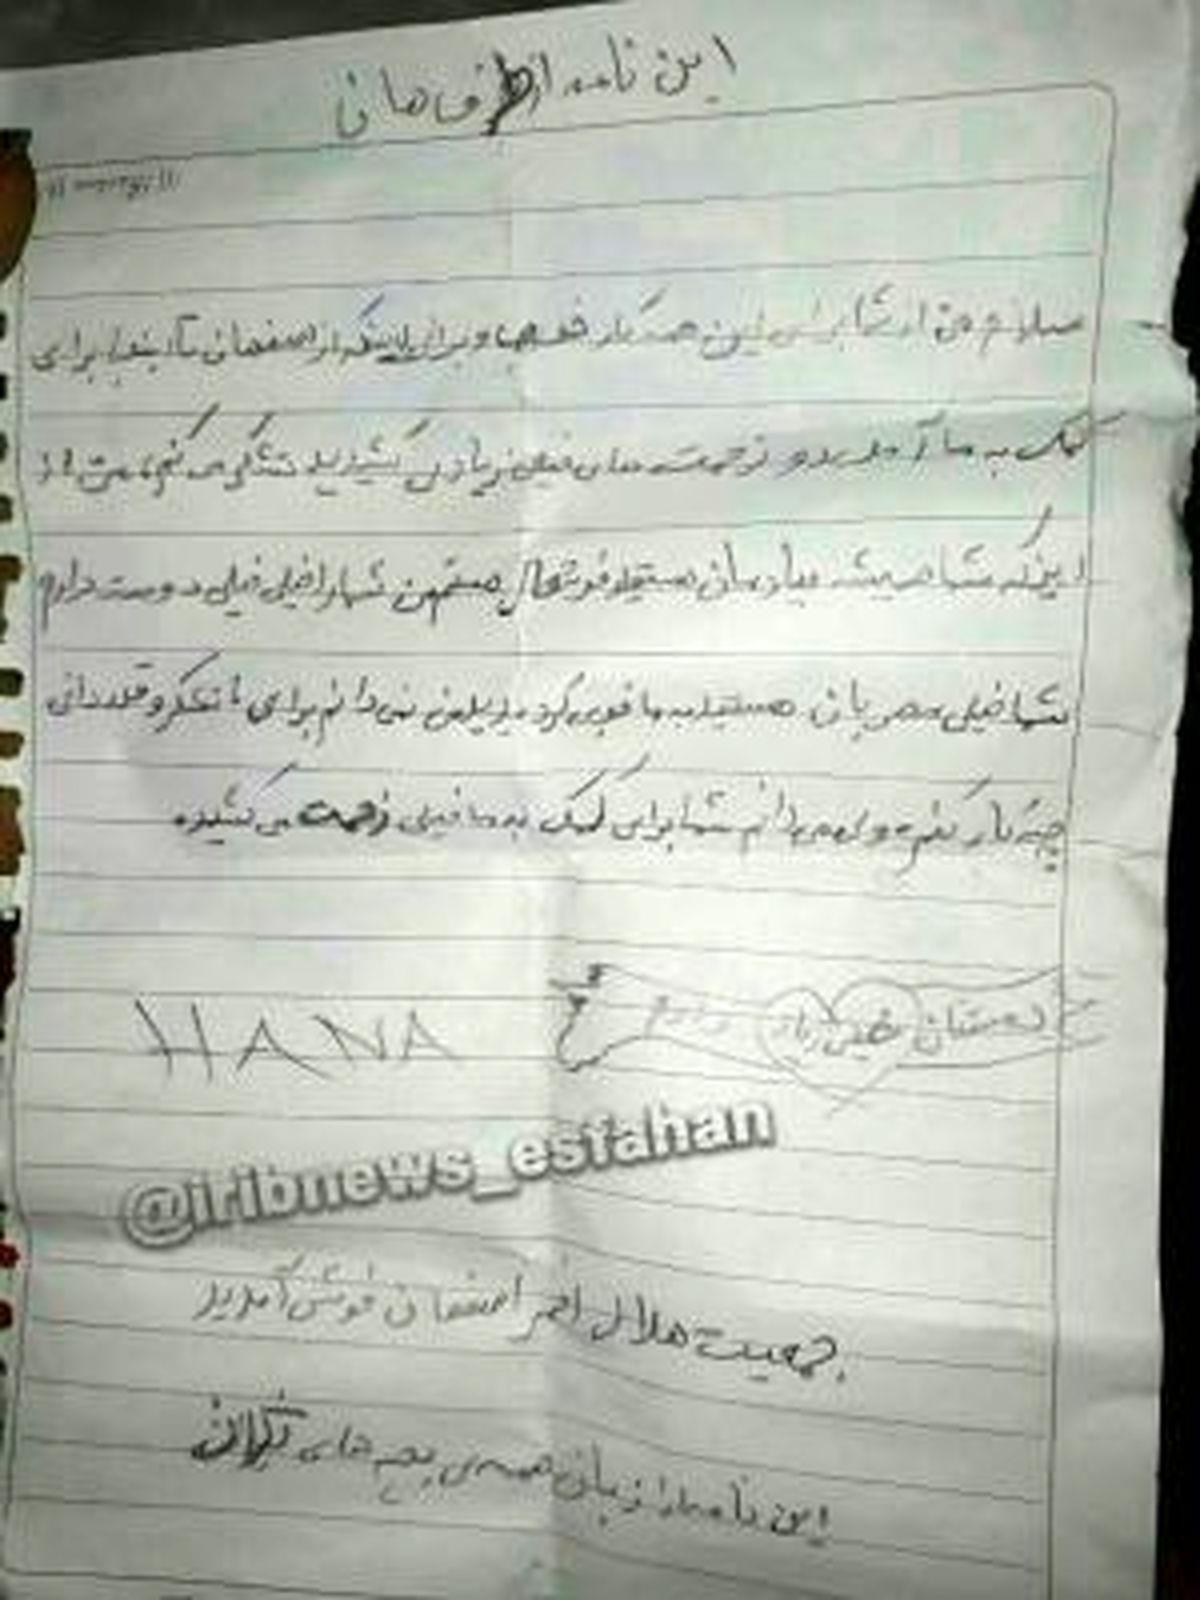 این نامه از طرف هانا
سلام من از شما برای این همه کار خوب و برای اینکه از اصفهان تا اینجا برای
کمک به ما آمدید و زحمت های خیلی زیادی کشیدید تشکر می کنم، من از
اینکه شما همیشه بیاد مان هستید خوشحال هستم من شما را خیلی خیلی دوست دارم
شما خیلی مهربان هستید به ما خوبی کردید من نمی دانم برای تشکر و قدردانی
چه کار کنم ولی می دانم شما برای کمک به ما خیلی زحمت می کشید.
دوستتان خیلی زیاد دارم
HANA
@iribnews_esfahan
جمعیت هلال احمر اصفهان خوش آمدید
این نامه از زبان همه ی بچه های